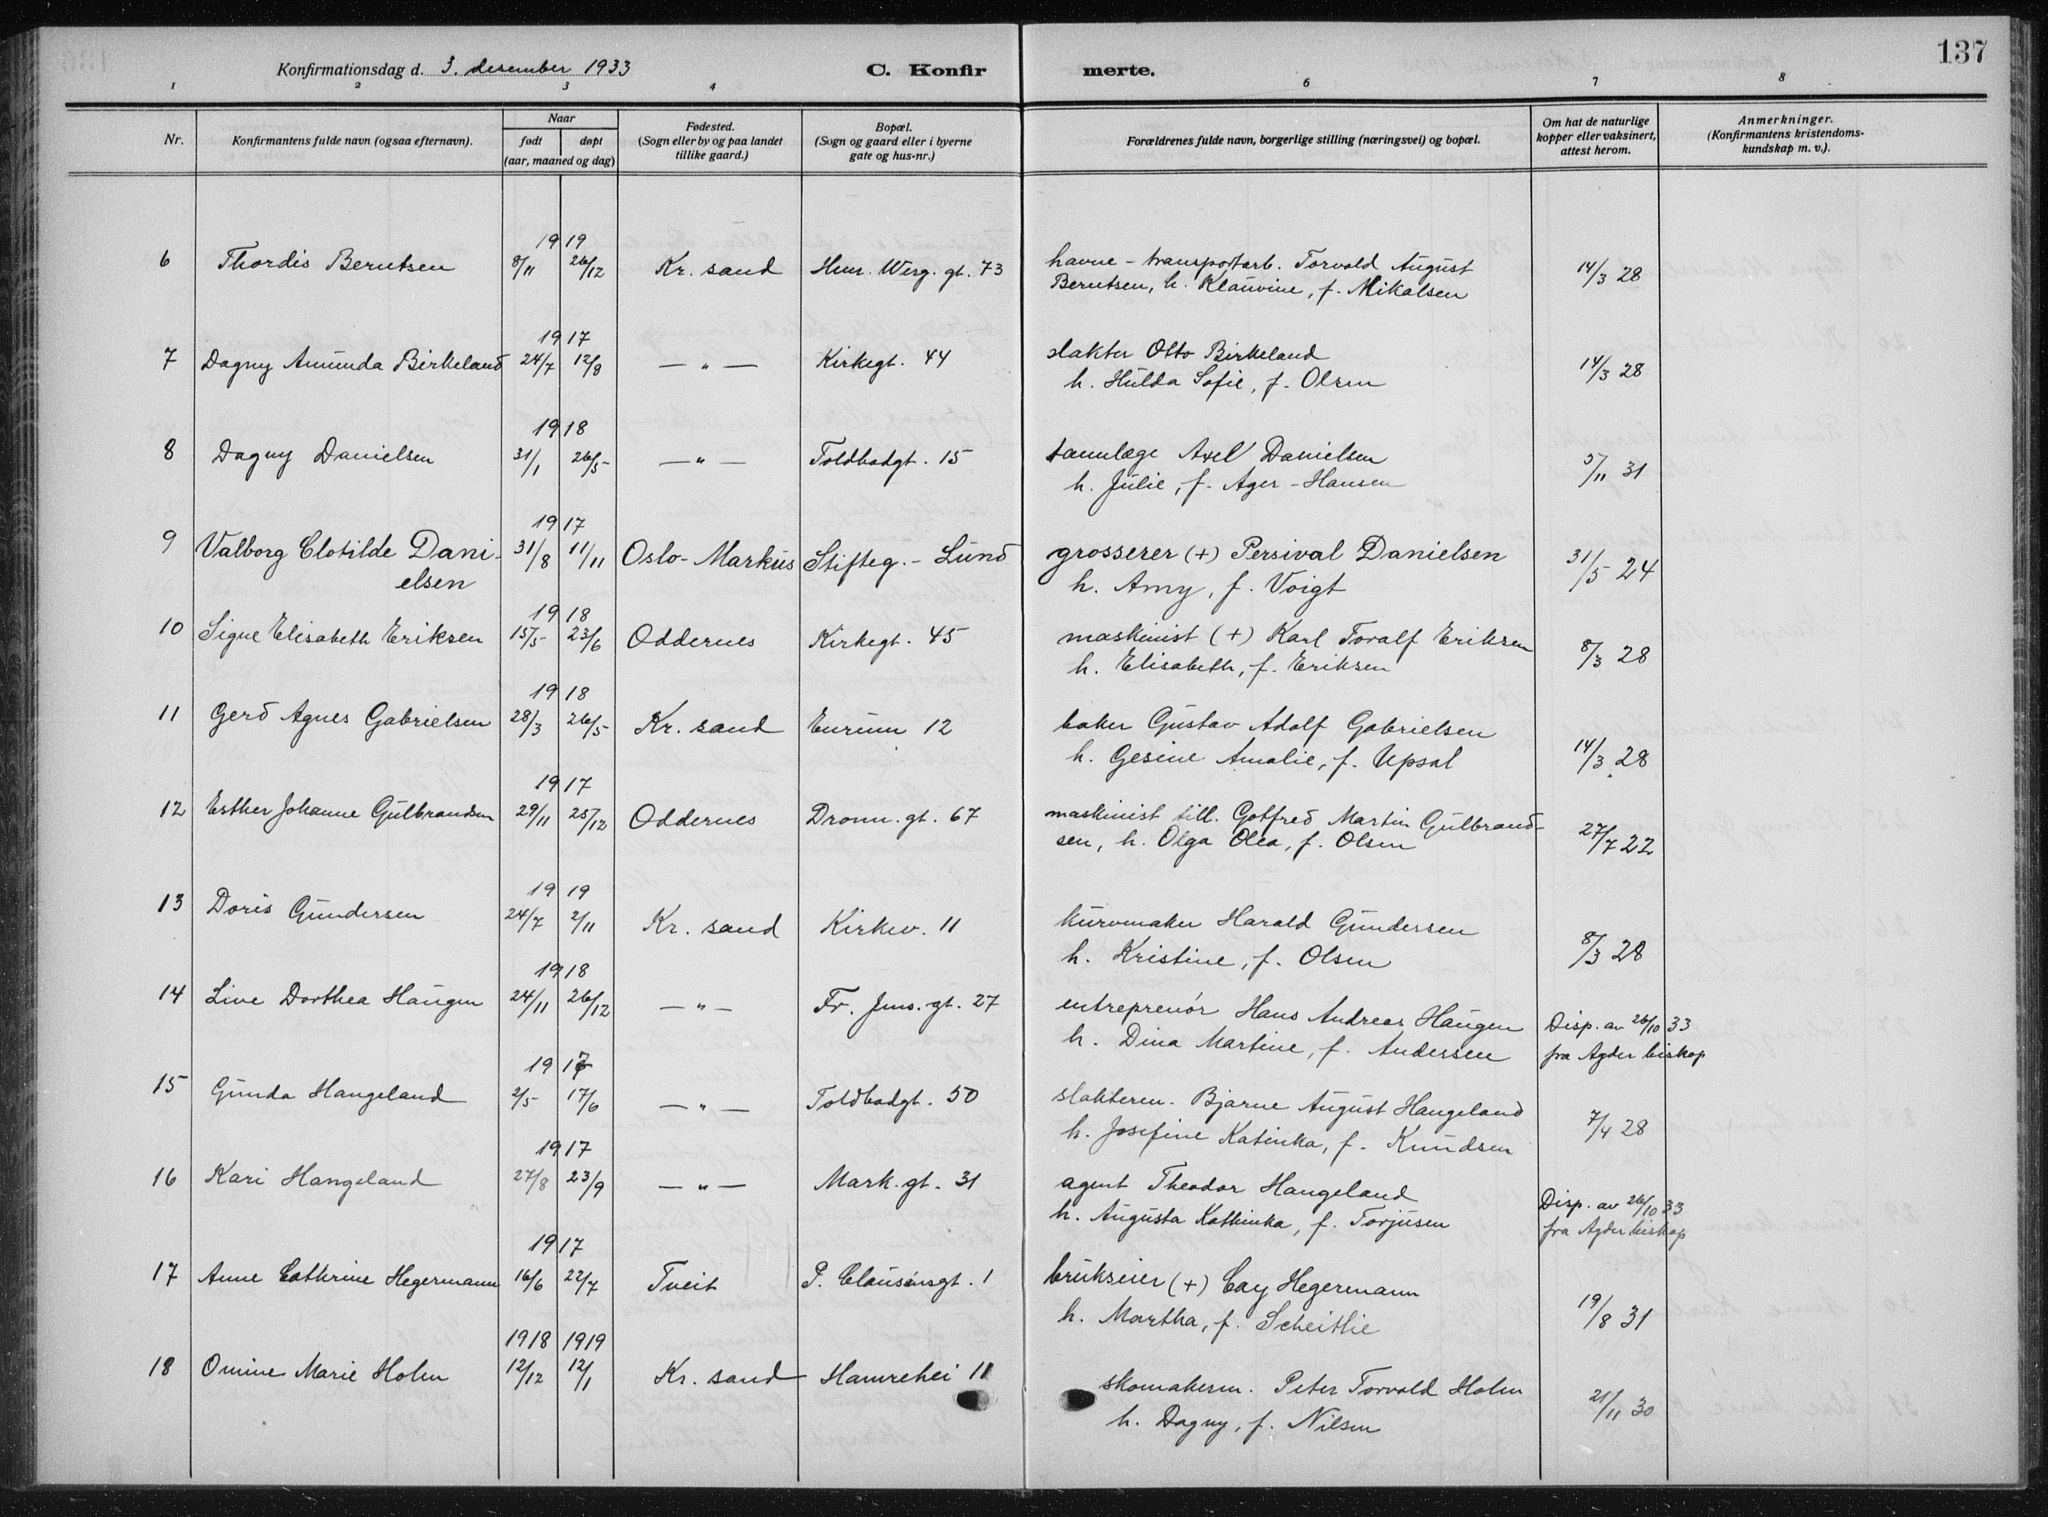 Konfirmationsdag d. 3. desember 1933 C. Konfirmerte. 137
1 2 3 4 6 7 8
Nr. Konfirmantens fulde navn (ogsaa efternavn). Naar født døpt (aar, maaned og dag) Fødested. (Sogn eller by og paa landet tillike gaard.) Bopæl. (Sogn og gaard eller i byerne gate og hus-nr.) Forældrenes fulde navn, borgerlige stilling (næringsvei) og bopæl. Om hat de naturlige kopper eller vaksinert, attest herom. Anmerkninger. (Konfirmantens kristendomskundskap m. v.).
1919
6 Thordis Berntsen 8/11 26/12 Kr. sand Henr. Werg. gt. 73 havne-transportarb. Torvald August 14/3 28
Berntsen, h. Klauvine, f. Mikalsen
1917
7 Dagny Amunda Birkeland 24/7 12/8 — " — Kirkegt. 44 slakter Otto Birkeland 14/3 28
h. Hulda Sofie, f. Olsen
1918
8 Dagny Danielsen 31/1 26/5 — " — Toldbodgt. 15 tannlæge Axel Danielsen 5/11 31
h. Julie, f. Ager-Hansen
1917
9 Valborg Clotilde Dani- 31/8 11/11 Oslo-Markus Stifteg. - Lund grosserer (+) Persival Danielsen 31/5 24
elsen h. Amy, f. Voigt
1918
10 Signe Elisabeth Eriksen 15/5 23/6 Oddernes Kirkegt. 45 maskinist (+) Karl Toralf Eriksen 8/3 28
h. Elisabeth, f. Eriksen
1918
11 Gerd Agnes Gabrielsen 28/3 26/5 Kr. sand Enrum 12 baker Gustav Adolf Gabrielsen 14/3 28
h. Gesine Amalie, f. Upsal
1917
12 Esther Johanne Gulbrandsen 29/11 25/12 Oddernes Dronn. gt. 67 maskinist till. Gotfred Martin Gulbrand- 27/7 22
sen, h. Olga Olea, f. Olsen
1919
13 Doris Gundersen 24/7 2/11 Kr. sand Kirkev. 11 kurvmaker Harald Gundersen 8/3 28
h. Kristine, f. Olsen
1918
14 Live Dorthea Haugen 24/11 26/12 — " — Fr. Jms. gt. 27 entreprenør Hans Andreas Haugen Disp. av 26/10 33
h. Dina Martine, f. Andersen fra Agder biskop
1917
15 Gunda Haugeland 2/5 17/6 — " — Toldbodgt. 50 slakterm. Bjarne August Haugeland 7/4 28
h. Josefine Katinka, f. Knudsen
1917
16 Kari Haugeland 27/8 23/9 — " — Mark. gt. 31 agent Theodor Haugeland Disp. av 26/10 33
h. Augusta Kathinka, f. Torjusen fra Agder biskop
1917
17 Anne Cathrine Hegermann 16/6 22/7 Tveit P. Clausensgt. 1 brukseier (+) Cay Hegermann 19/8 31
h. Martha, f. Scheitlie
1918 1919
18 Omine Marie Holm 12/12 12/1 Kr. sand Hamrehei 11 skomakerm. Peter Torvald Holm 21/11 30
h. Dagny, f. Nilsen